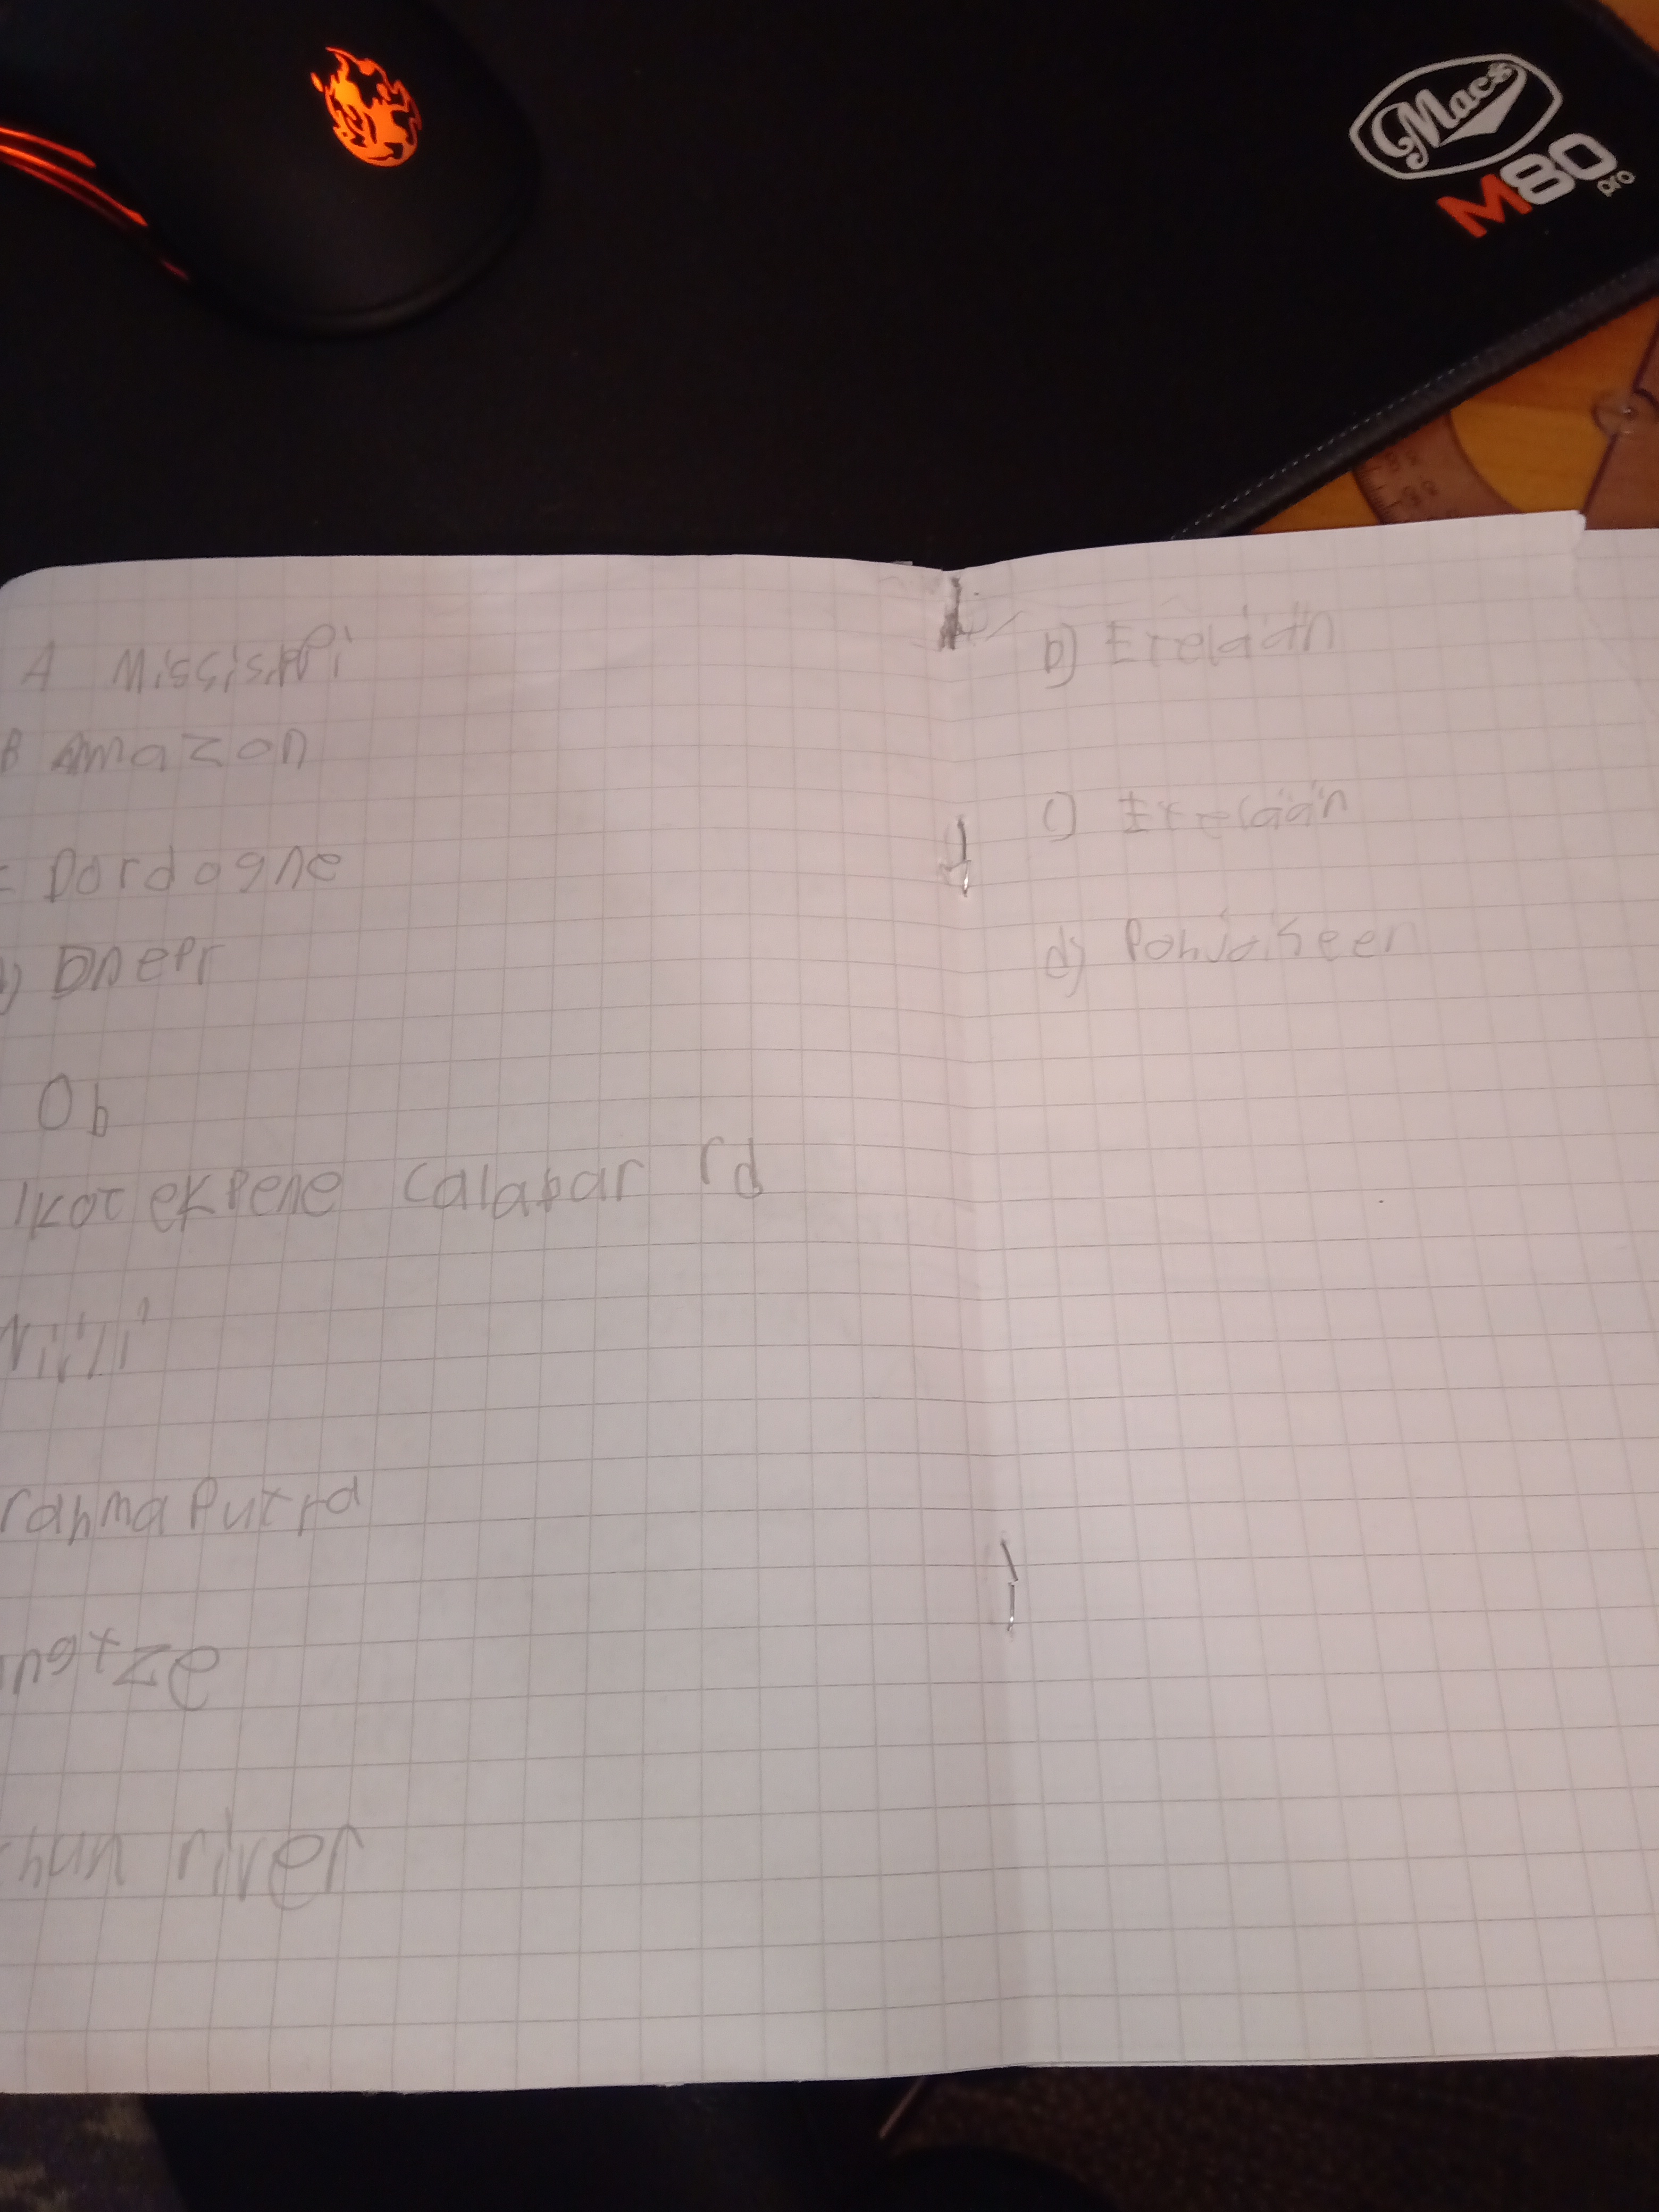 Mac*
M80
pro
A Missisippi
B Amazon
Dordogne
D) Dnepr
Ob
Ikot ekpene calabar rd
Niili
rahmaputra
ngtze
hun river
b) Etelään
c) Etelään
d)